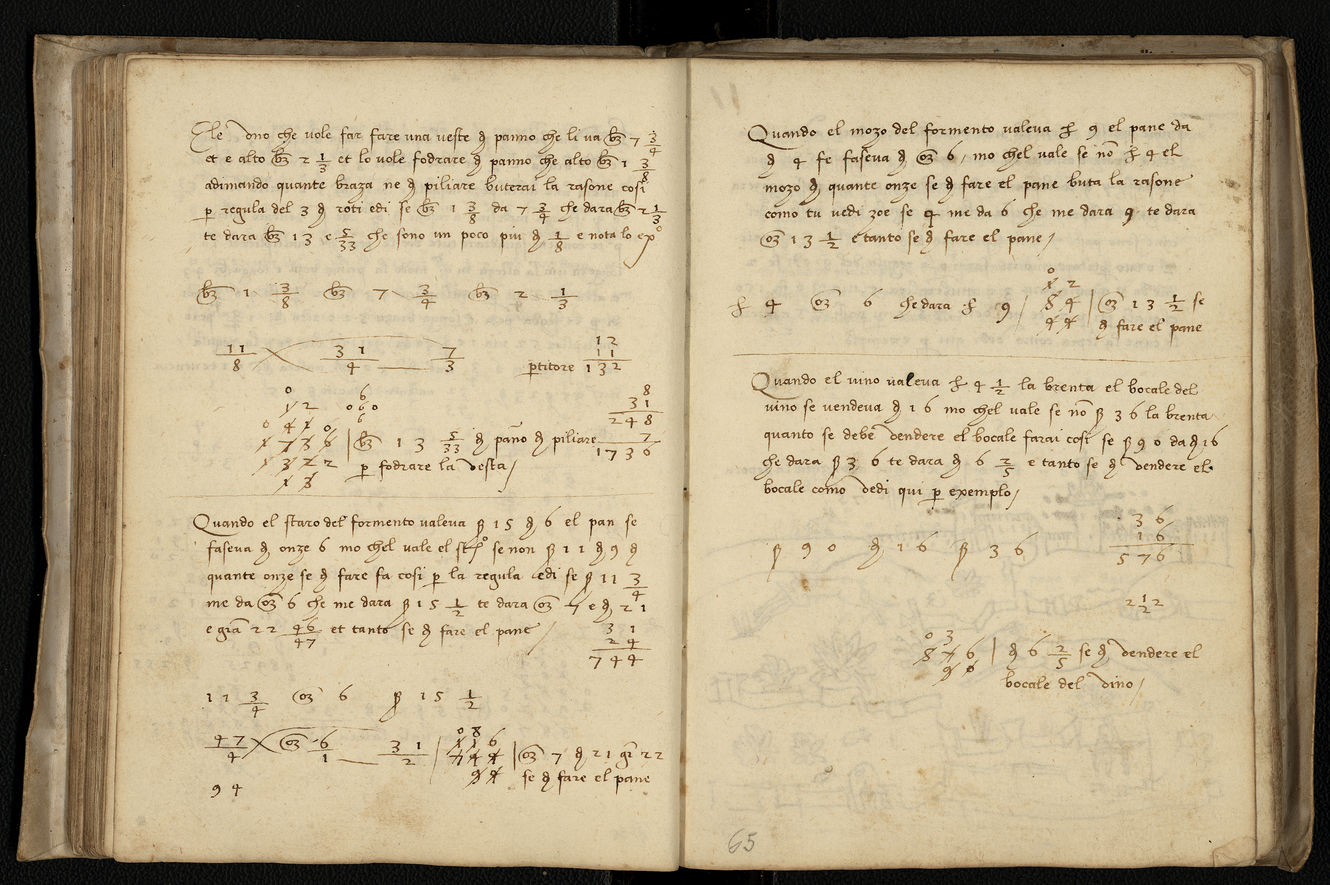 Ele uno che vole far fare una veste d panno che li va bz 7 3/4
et e alto bz 2 1/3 et lo vole fodrare d panno che alto bz 1 3/8
adimando quante braza ne d piliare buterai la rasone cosi
p regula del 3 d roti edi se bz 1 3/8 da 7 3/4 che dara bz 2 1/3
te dara bz 13 e 5/33 che sono un poco piu d 1/8 e nota lo exo
bz 1 3/8 bz 7 3/4 bz 2 1/3
11/8 31/4 7/3 ptitore 132
12
11
8
31
248
7
1736
bz 13 5/33 d pano d piliare
p fodrare la vesta/
Quando el staro del formento valeva 15 d 6 el pan se
faseva d onze 6 mo chel vale el se non 11 d 9 d
quante onze se d fare fa cosi p la regula edi se 11 3/4
me da oz 6 che me dara 15 1/2 te dara oz 7 e d 21
e gra 22 46/47 et tanto se d fare el pane/
31
24
744
11 3/4 oz 6 15 1/2
47/4 oz 6/1 31/2
oz 7 d 21 gr 22
se d fare el pane
94
Quando el mozo del formento valeva 9 el pane da
d 4 fe faseva d oz 6/ mo chel vale se no 4 el
mozo d quante onze se d fare el pane buta la rasone
como tu vedi zoe se 4 me da 6 che me dara 9 te dara
oz 13 1/2 e tanto se d fare el pane/
4 oz 6 che dara 9/
oz 13 1/2 se
d fare el pane
Quando el vino valeva 4 1/2 la brenta el bocale del
vino se vendeva d 16 mo chel vale se no 36 la brenta
quanto se debe vendere el bocale farai cosi se 90 da d 16
che dara 36 te dara d 6 2/5 e tanto se d vendere el
bocale como vedi qui p exemplo/
36
16
576
90 d 16 36
d 6 2/5 se d vendere el
bocale del vino/
65